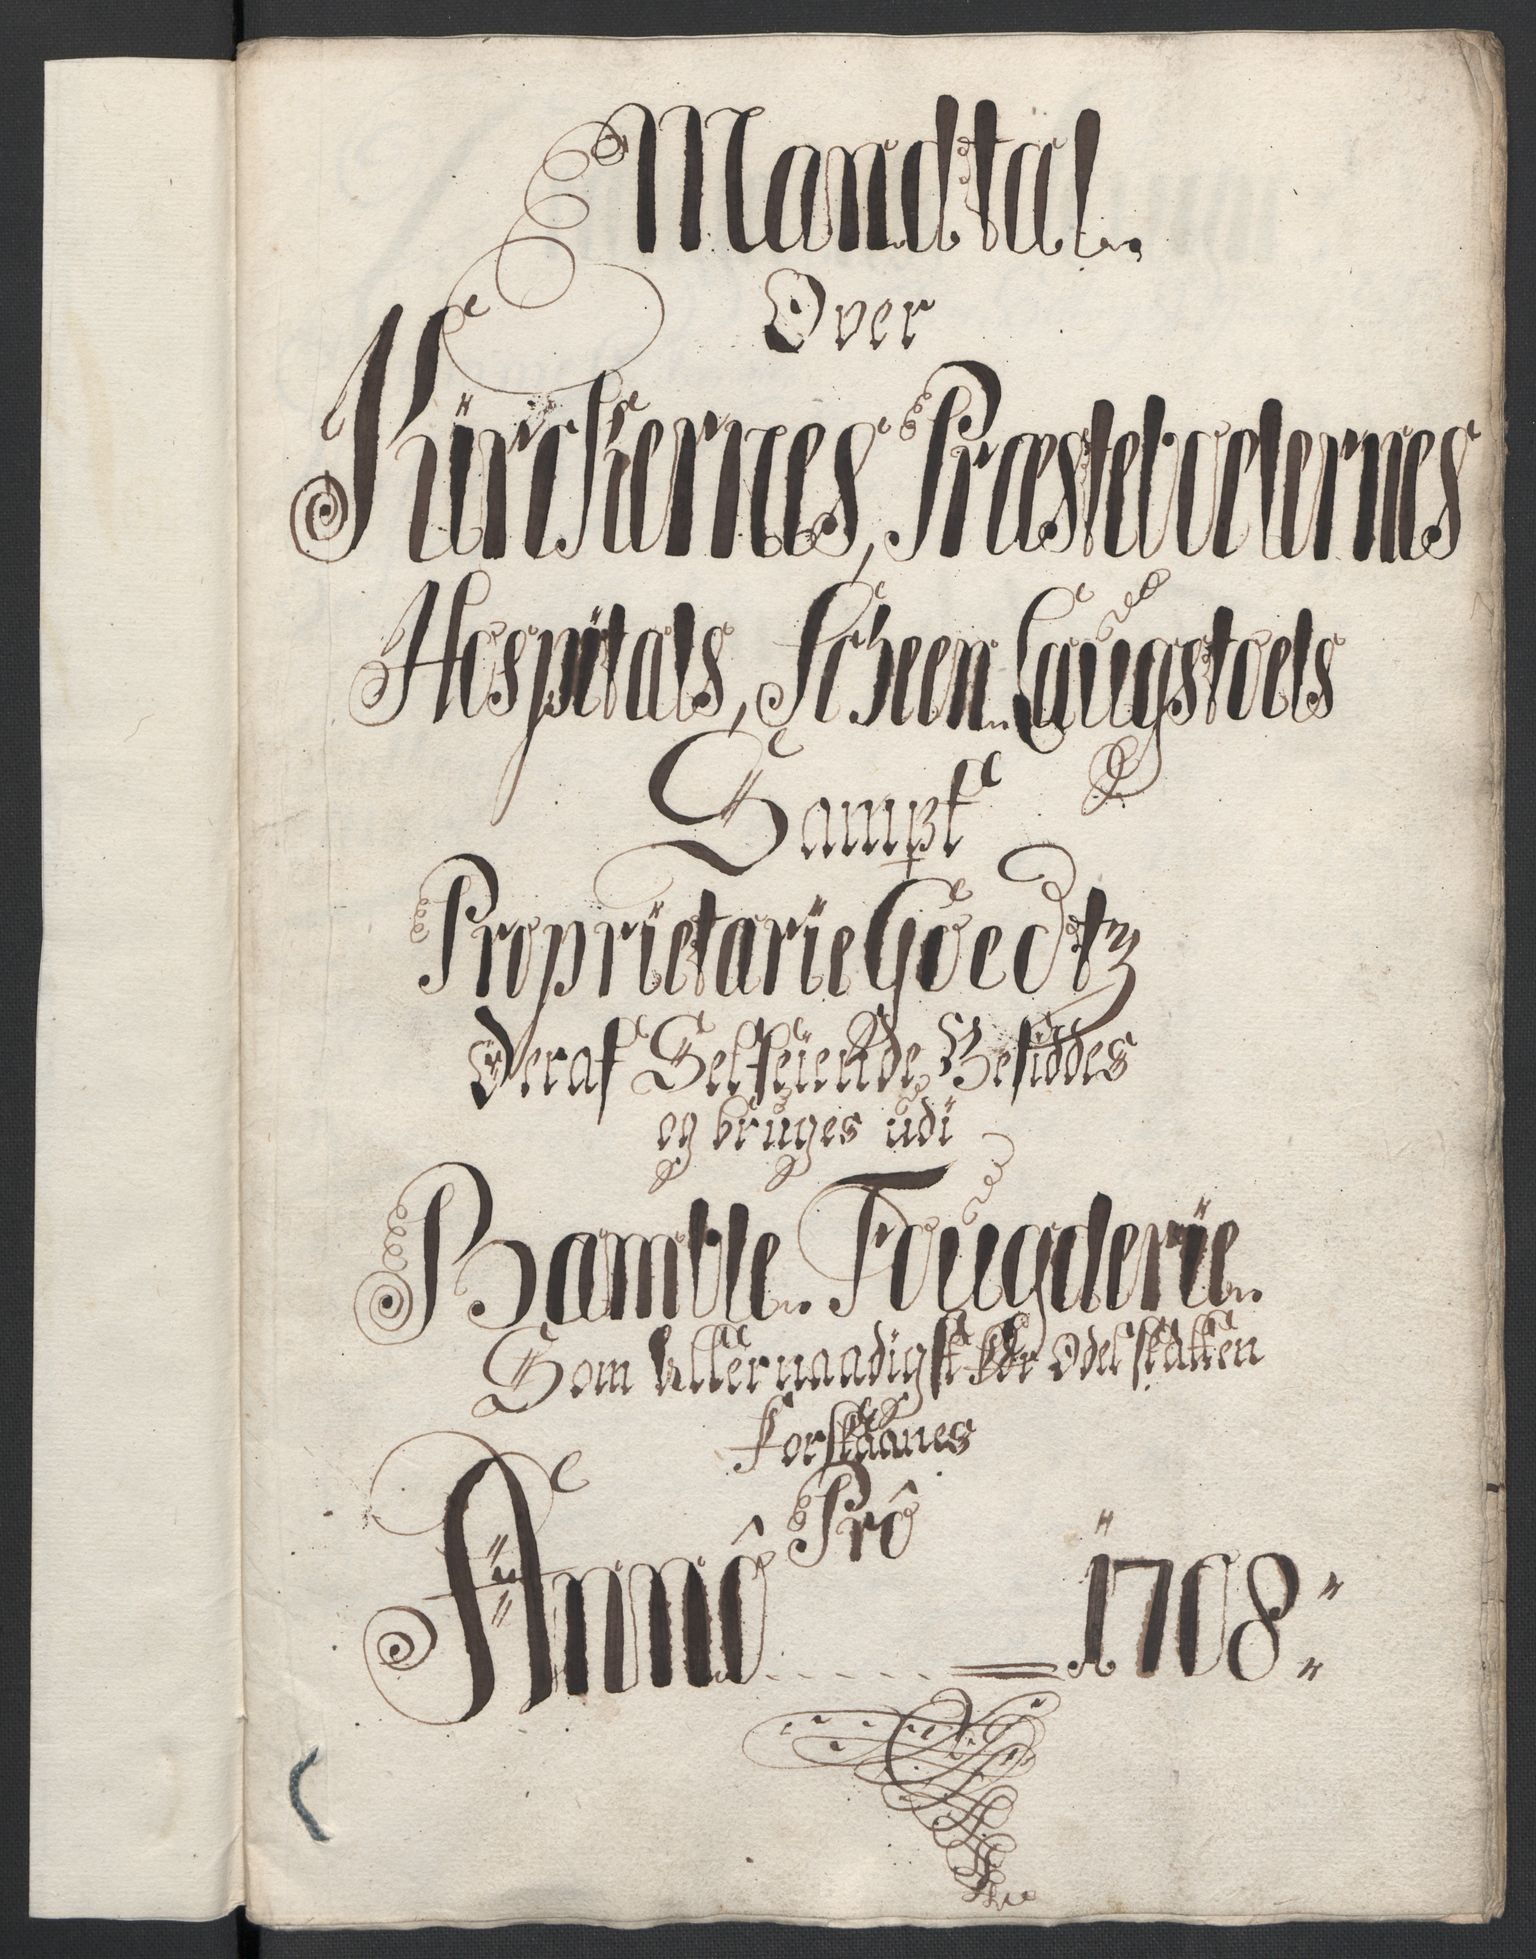 Mandtal
Over
Kürckernes, Præsteboelernes
Hospitals, Scheen Laugstoels
Sampt
Proprïetarïe Goedtz
Deraf Selfeiende Besiddes
og bruges udi
Bamble Fougderïe
Som Allernaadigst for Odelskatten
forskaanes
Prô
Annô 1708